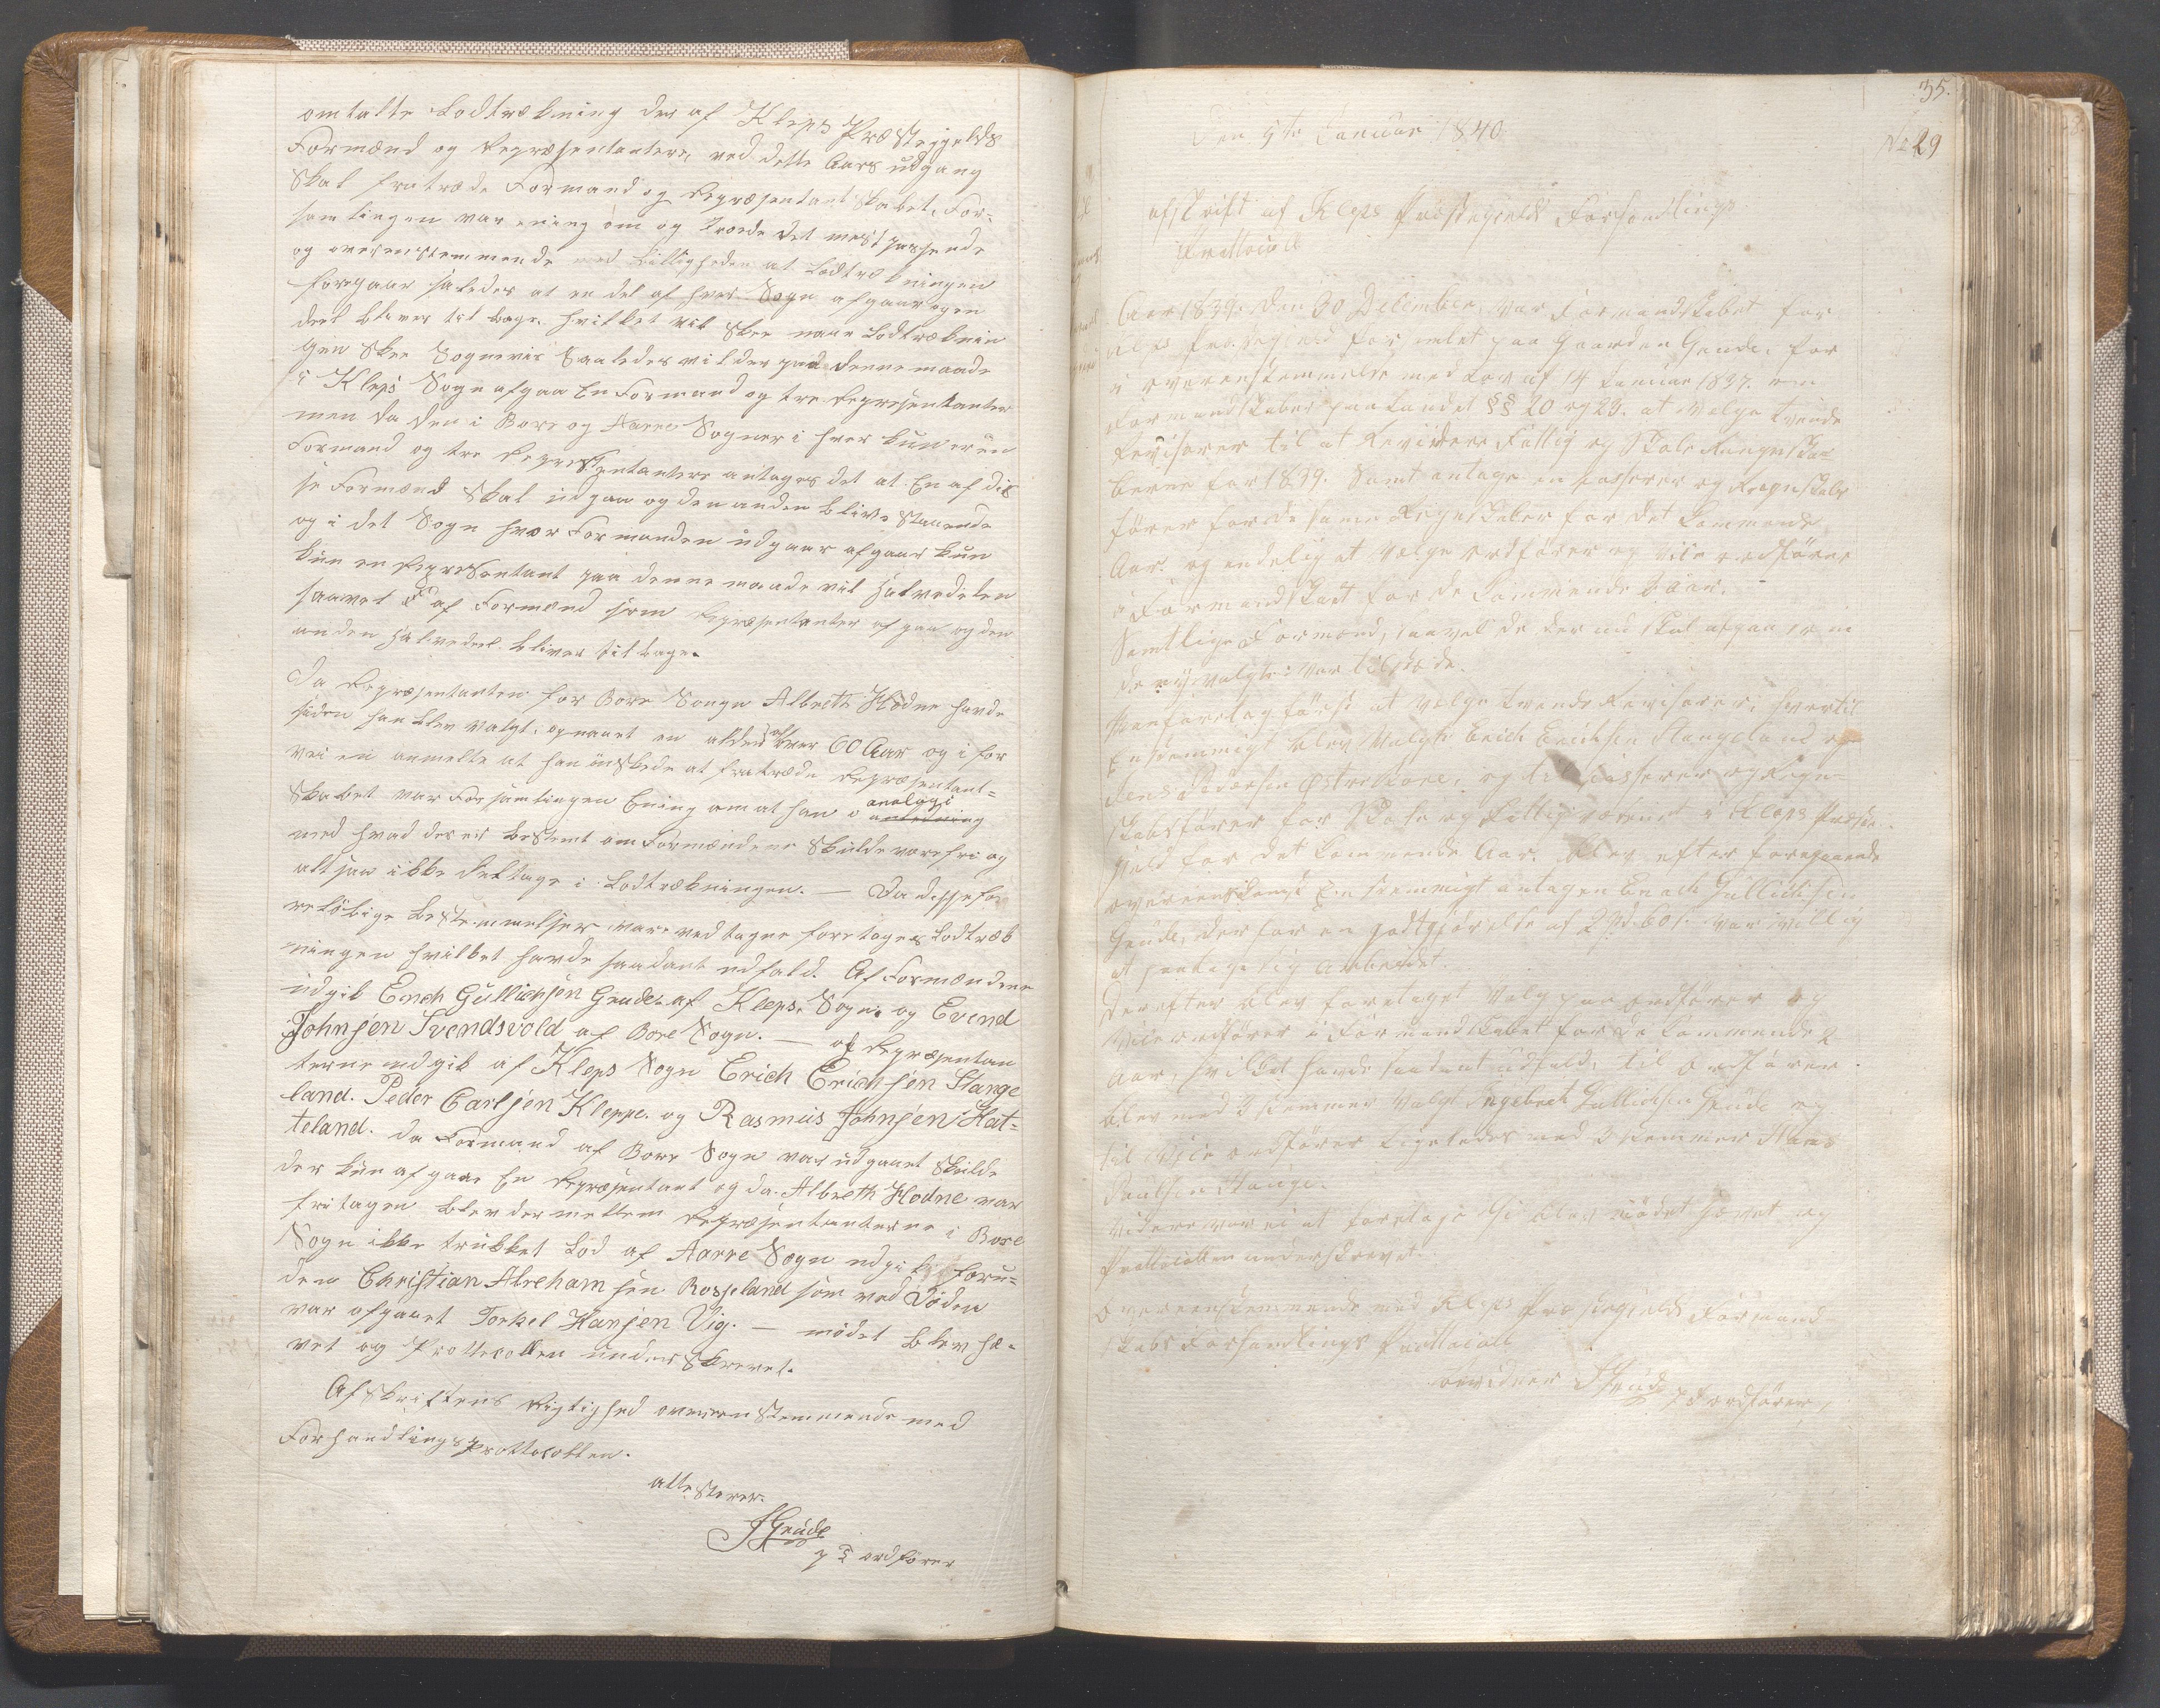 omtalte Lodtrækning der af Kleps Præstegjelds
Formænd og Repræsentantere, ved dette Aars udgang
skal fratræde Formand og Repræsentantskabet, For-
samlingen var ening om og troede det mest passende
og overenstemmende med billigheden at Lodtrækningen
foregaar saaledes at en del af hver Sogn afgaar ogen
deel bliver tilbage. hvilket vil skee naar Lodtræknin
gen skee Sogneviis Saaledes vil der paa denne maade
i Kleps Sogn afgaa En Formand og tre Repræsentanter
men da den i Bore og Aarre Sogner i hver kun er een
Formand og tre Repræsentantere antages det at En af dis
se Formænd skal udgaa og den anden blive staaende
og i det Sogn hvor Formanden udgaar afgaar kun
kun en Repræsentant paa denne maade vil halvedelen
saavel af Formænd som Repræsentanter afgaa og den
anden halvedeel bliver tilbage.
Da Repræsentanten for Bore Sougn Albreth Hodne havde
siden han blev valgt, opnaaet en alder af over 60 Aar og i for
vei en anmelte at han ønskede at fratræde Repræsentant=
skabet var Forsamlingen Ening om at han i analogi
anledning
med hvad der er bestemt om Formændene skulde være fri og
altsaa ikke deltage i Lodtrækningen. — Da disse fo
reløbige bestemmelser vare vedtagne foretoges Lodtræk
ningen hvilket havde saadant udfald. Af Formændene
udgik Enoch Gullichsen Grude af Kleps Sogn. og Evend
Johnsen Svendsvold af Bore Sogn. — af Repræsentan
terne udgik af Kleps Sogn Erich Erichsen Stange
land. Peder Carlsen Kleppe. og Rasmus Johnsen Hat=
teland. da Formand af Bore Sogn var udgaaet skulde
der kun afgaae En Repræsentant og da Albreth Hodne var
fritagen blev der mellem Repræsentanterne i Bore
Sogn ikke trukket Lod af Aarre Sogn udgik foru=
den Christian Abrehamsen Rosseland som ved Døden
var afgaaet Torkel Hansen Vig. — mødet blev hæ-
vet og Prottocollen underskrevet.
Afskriftens Rigtighed overenstemmende med
Forhandlings Prottocollen.
attesterer.
Grude
p t ordfører
35.
Den 5te Januar 1840
No 29
afskrift af Kleps Præstegjelds Forhandlings
Prottocoll
Aar 1839. den 30 December, var Formandskabet for
Kleps Præstegjeld forsamlet paa Gaarden Grude. for
i overenstemmelse med Lov af 14 Januar 1837. om
Formandskaber paa Landet §§ 20 og 23. at vælge tvende
Revisorer til at Revidere Fattig og Skole Rengnska=
berne for 1839. Samt antage en Casserer og Regnskabs
fører for de samme Regnskaber for det kommende
Aar. og endelig at vælge ordfører og vice ordfører
i Formandskabet for de kommende 2 aar.
Samtlige Formænd, saavel de der nu skal afgaa som
de nyvalgte var tilstæde.
Man foretog først at vælge tvende Revisorer, hvertil
Enstemmigt blev valgt Erich Erichsen Stangeland og
Jens Pedersen Østrebore, og til Casserer og Regn=
skabsfører for Skole og Fattigvæsenet i Kleps Præste-
gjeld for det kommende Aar. blev efter foregaaende
overeenskomst Enstemmigt antagen Enoch Gullichsen
Grude, der for en godtgjørelse af 2 Spd. 60 s. var villig
at paatage sig Arbeidet.
Derefter blev foretaget Valg paa ordfører og
Viceordfører i Formandskabet for de kommende 2
Aar, hvilket havde saadant udfald, til Ordfører
blev med 3 stemmer valgt Ingebret Gullichsen Grude og
til Vice ordfører ligeledes med 3 stemmer Hans
Paulsen Hauge.
Videre var ei at foretage Hi blev mødet hævet og
Prottocollen underskrevet.
Overeenstemmende med Kleps Præstegjelds Formand-
skabs Forhandlings Prottocoll
bevidner Grude
p t ordfører